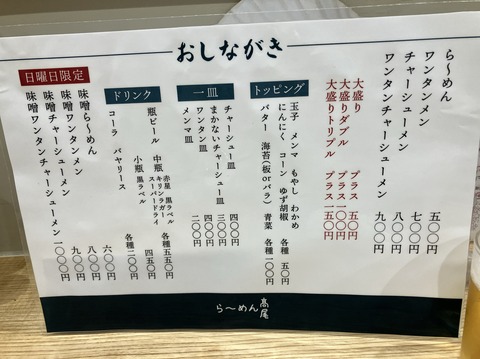 おしながき
ら〜めん 五〇〇円
ワンタンメン 七〇〇円
チャーシューメン 八〇〇円
ワンタンチャーシューメン 九〇〇円
大盛り プラス 五〇円
大盛りダブル プラス一〇〇円
大盛りトリプル プラス一五〇円
トッピング
玉子 メンマ もやし わかめ
にんにく コーン ゆず胡椒 各種 五〇円
バター 海苔(板orバラ) 青菜 各種一〇〇円
一皿
チャーシュー皿 四〇〇円
まかないチャーシュー皿 三〇〇円
ワンタン皿 二〇〇円
メンマ皿 二〇〇円
ドリンク
瓶ビール 中瓶 赤星 黒ラベル
キリンラガー
スーパードライ 各種五五〇円
小瓶 黒ラベル 四五〇円
コーラ バヤリース 各種二〇〇円
日曜日限定
味噌ら〜めん 六〇〇円
味噌ワンタンメン 八〇〇円
味噌チャーシューメン 九〇〇円
味噌ワンタンチャーシューメン 一〇〇〇円
ら〜めん 高尾